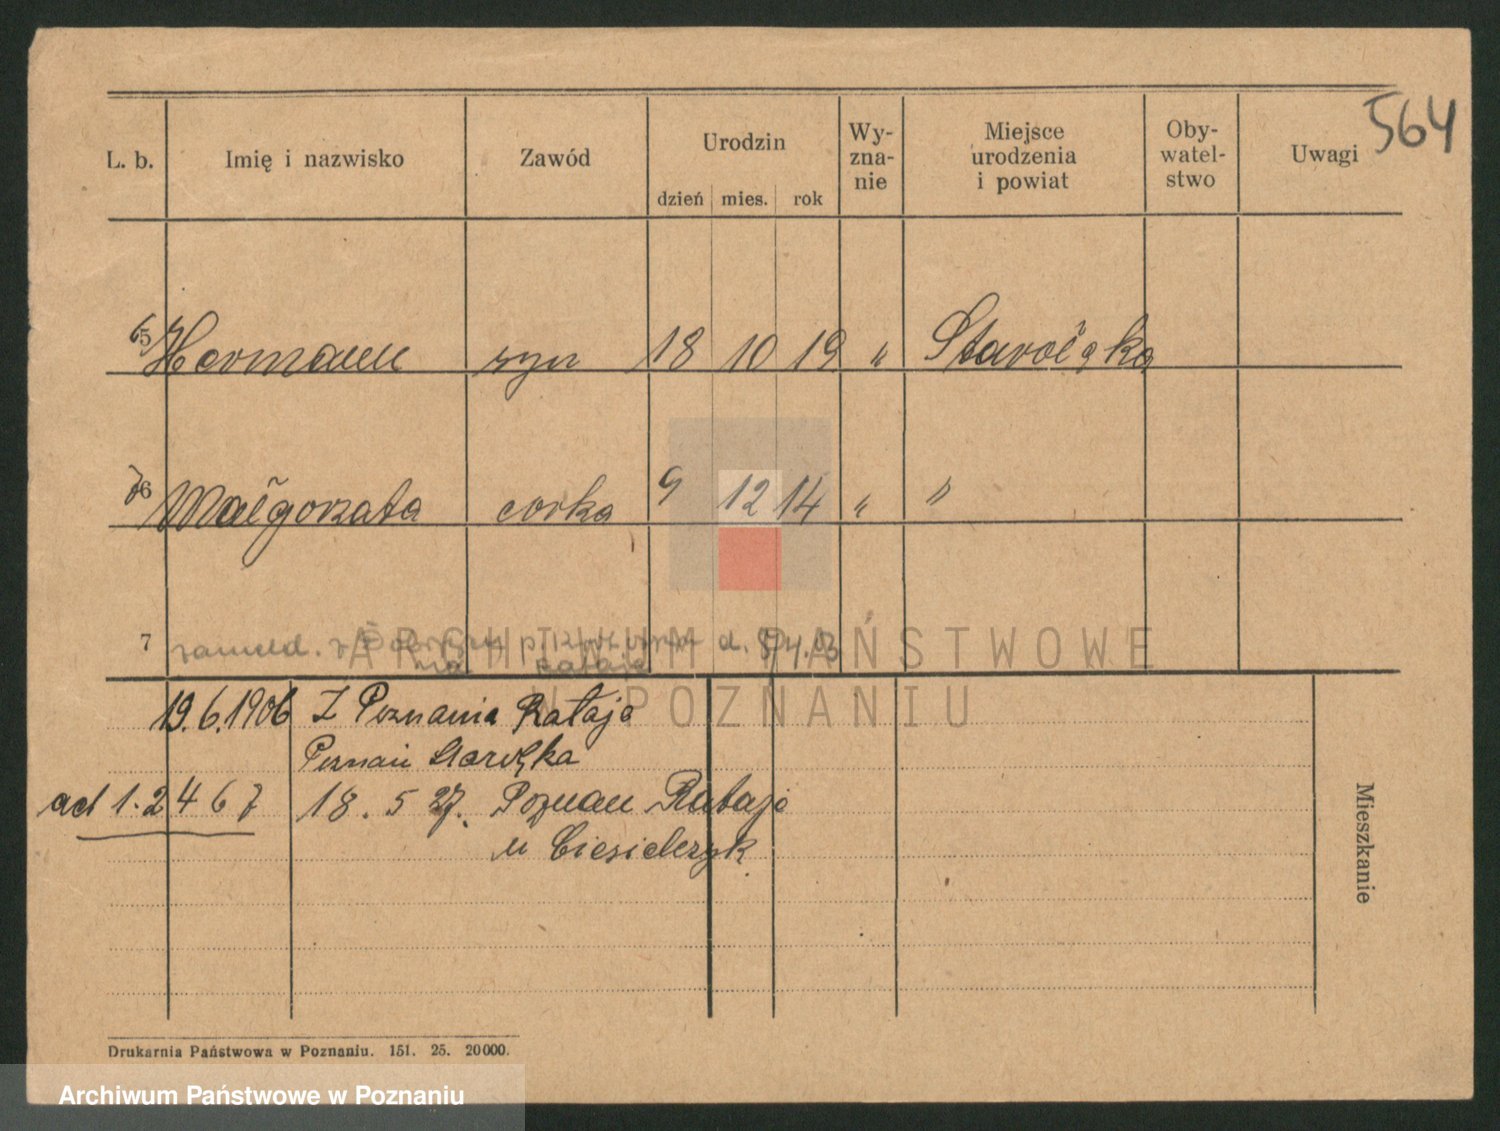 564
L. b. Imię i nazwisko Zawód Urodzin Wy-zna-nie Miejsce urodzenia i powiat Oby-watel-stwo Uwagi
dzień mies. rok
65 Hermann syn 18 10 19 " Starołęka
76 Małgorzata corka 9 12 14 " "
7 zameld. z p. d. 4.03
ARCHIWUM PAŃSTWOWE
W POZNANIU
19.6.1906 Z Poznania Rataje
Poznań Starołęka
ad 1. 2 4 6 7 18. 5 27. Poznań Rataje
u Ciesielczyk
Mieszkanie
Drukarnia Państwowa w Poznaniu. 151. 25. 20000.
Archiwum Państwowe w Poznaniu